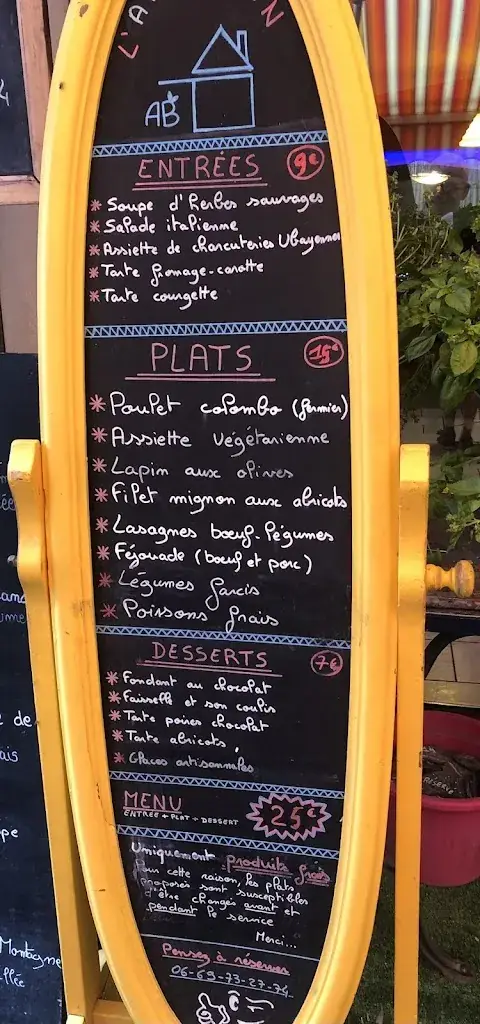 AB
ENTRÉES 9€
* Soupe d'herbes sauvages
* Salade italienne
* Assiette de charcuteries Ubayennes
* Tarte fromage-carotte
* Tarte courgette
PLATS 15€
* Poulet colombo (fermier)
* Assiette végétarienne
* Lapin aux olives
* Filet mignon aux abricots
* Lasagnes bœuf-légumes
* Féjouade (bœuf et porc)
* Légumes farcis
* Poissons frais
DESSERTS 7€
* Fondant au chocolat
* Faisselle et son coulis
* Tarte poires chocolat
* Tarte abricots
* Glaces artisanales
MENU 25€
ENTRÉE + PLAT + DESSERT
Uniquement produits frais
Pour cette raison, les plats
proposés sont susceptibles
d'être changés avant et
pendant le service
Merci...
Pensez à réserver
06-69-73-27-74
Montagne